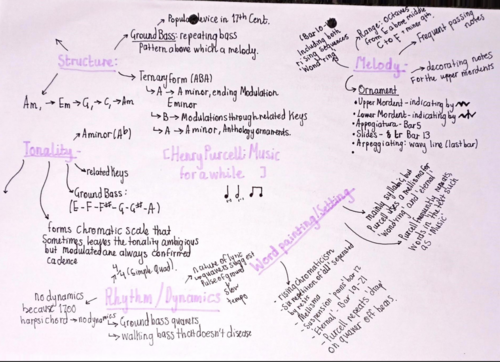 Popular device in 17th Cent.
Ground Bass: repeating bass
Pattern above which a melody.
Structure:
Ternary Form (ABA)
A → A minor, ending Modulation
E minor
B → Modulations through related keys
A → A minor, Anthology ornaments.
Am, → Em → G, C, → Am
A minor (Ab)
Tonality -
related Keys
Ground Bass:
(E-F-F#-G-G#-A)
forms chromatic scale that
Sometimes leaves the tonality ambigious
but modulated are always confirmed
cadence
[Henry Purcell: Music
for a while ]
(Bar 10-
Including both
rising sequences
Wondring
Range: octaves
from E above middle
C to F - minor 9th.
Frequent passing
notes
Melody -
decorating notes
For the upper mordents
Ornament
Upper Mordent - indicating by
Lower Mordent - indicating by
Appogiatura - Bar 5
Slides - Bar 13
Arpeggiating: wavy line (last bar)
Word painting/Setting
mainly syllabic but
Purcell uses a mellisma for
'wond'ring' and 'eternal'
Purcell frequently repeats
words in the text such
as 'Music'
by rests
Mellisma
Suspension 'pains' bar 12
'Eternal' - Bar 19-21
Purcell repeats 'drop'
on quaver off beats.
(Simple Quad).
nature of lyric
quavers suggest
pulse of ground
& slow
tempo
Rhythm / Dynamics
no dynamics
because 1700
harpsichord → no dynamics
Ground bass quavers
walking bass that doesn't disease